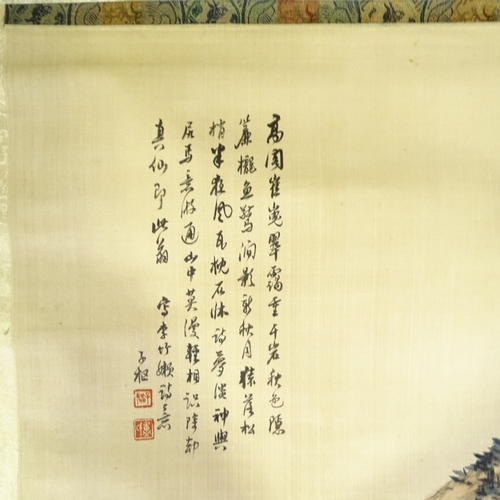 高閣崔嵬翠靄重千岩秋色隱
簾櫳魚驚澗影新秋月猿落松
梢半夜風瓦枕石床詩夢淡神與
居焉意游通山中莫漫輕相識除卻
真仙即此翁
寫李竹嬾詩意
子